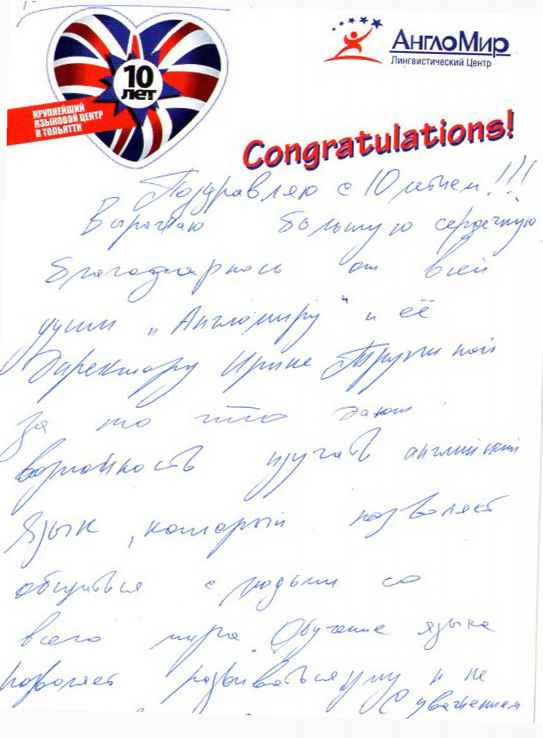 10
лет
КРУПНЕЙШИЙ
ЯЗЫКОВОЙ ЦЕНТР
В ТОЛЬЯТТИ
АнглоМир
Лингвистический Центр
Congratulations!
Поздравляю с 10 летием!!!
Выражаю большую сердечную
благодарность от всей
души „Англомиру" и её
Директору Ирине
за то что дают
возможность изучать английский
Язык, который позволяет
общаться с людьми со
всего мира. Обучение языка
позволяет развиваться уму и не
С уважением